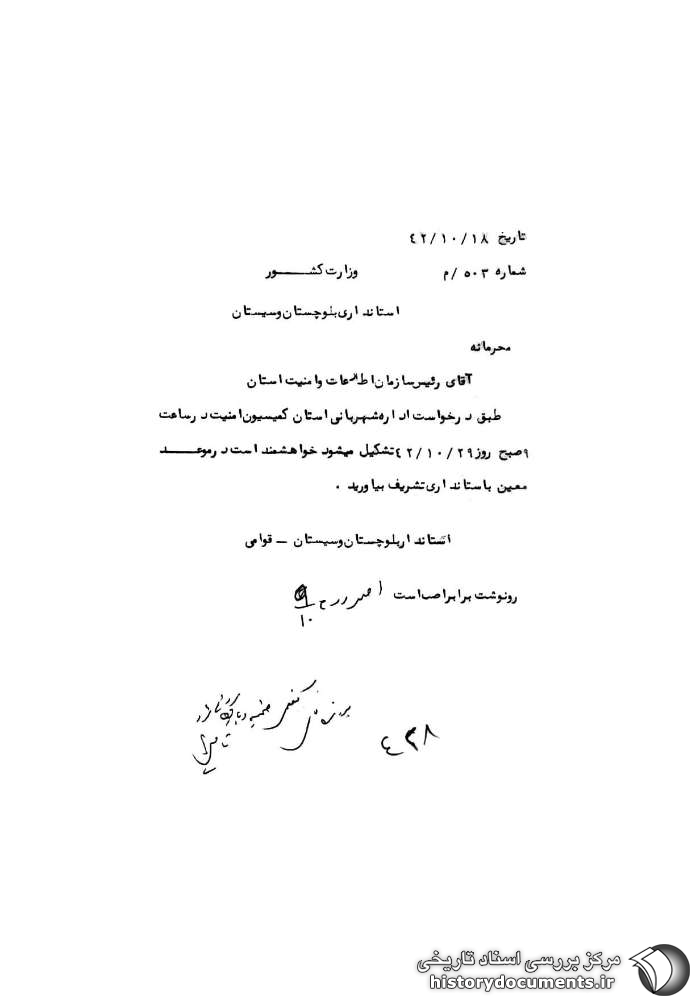 تاریخ ۴۲/۱۰/۱۸
شماره ۵۰۳/م وزارت کشــــور
استانداری بلوچستان و سیستان
محرمانه
آقای رئیس سازمان اطلاعات و امنیت استان
طبق درخواست اداره شهربانی استان کمیسیون امنیت در ساعت
۹ صبح روز ۴۲/۱۰/۲۹ تشکیل میشود خواهشمند است در موعـــد
معین باستانداری تشریف بیاورید .
استاندار بلوچستان و سیستان – قوامی
رونوشت برابر اصل است
۱۰
۴۳۸
مرکز بررسی اسناد تاریخی
historydocuments.ir